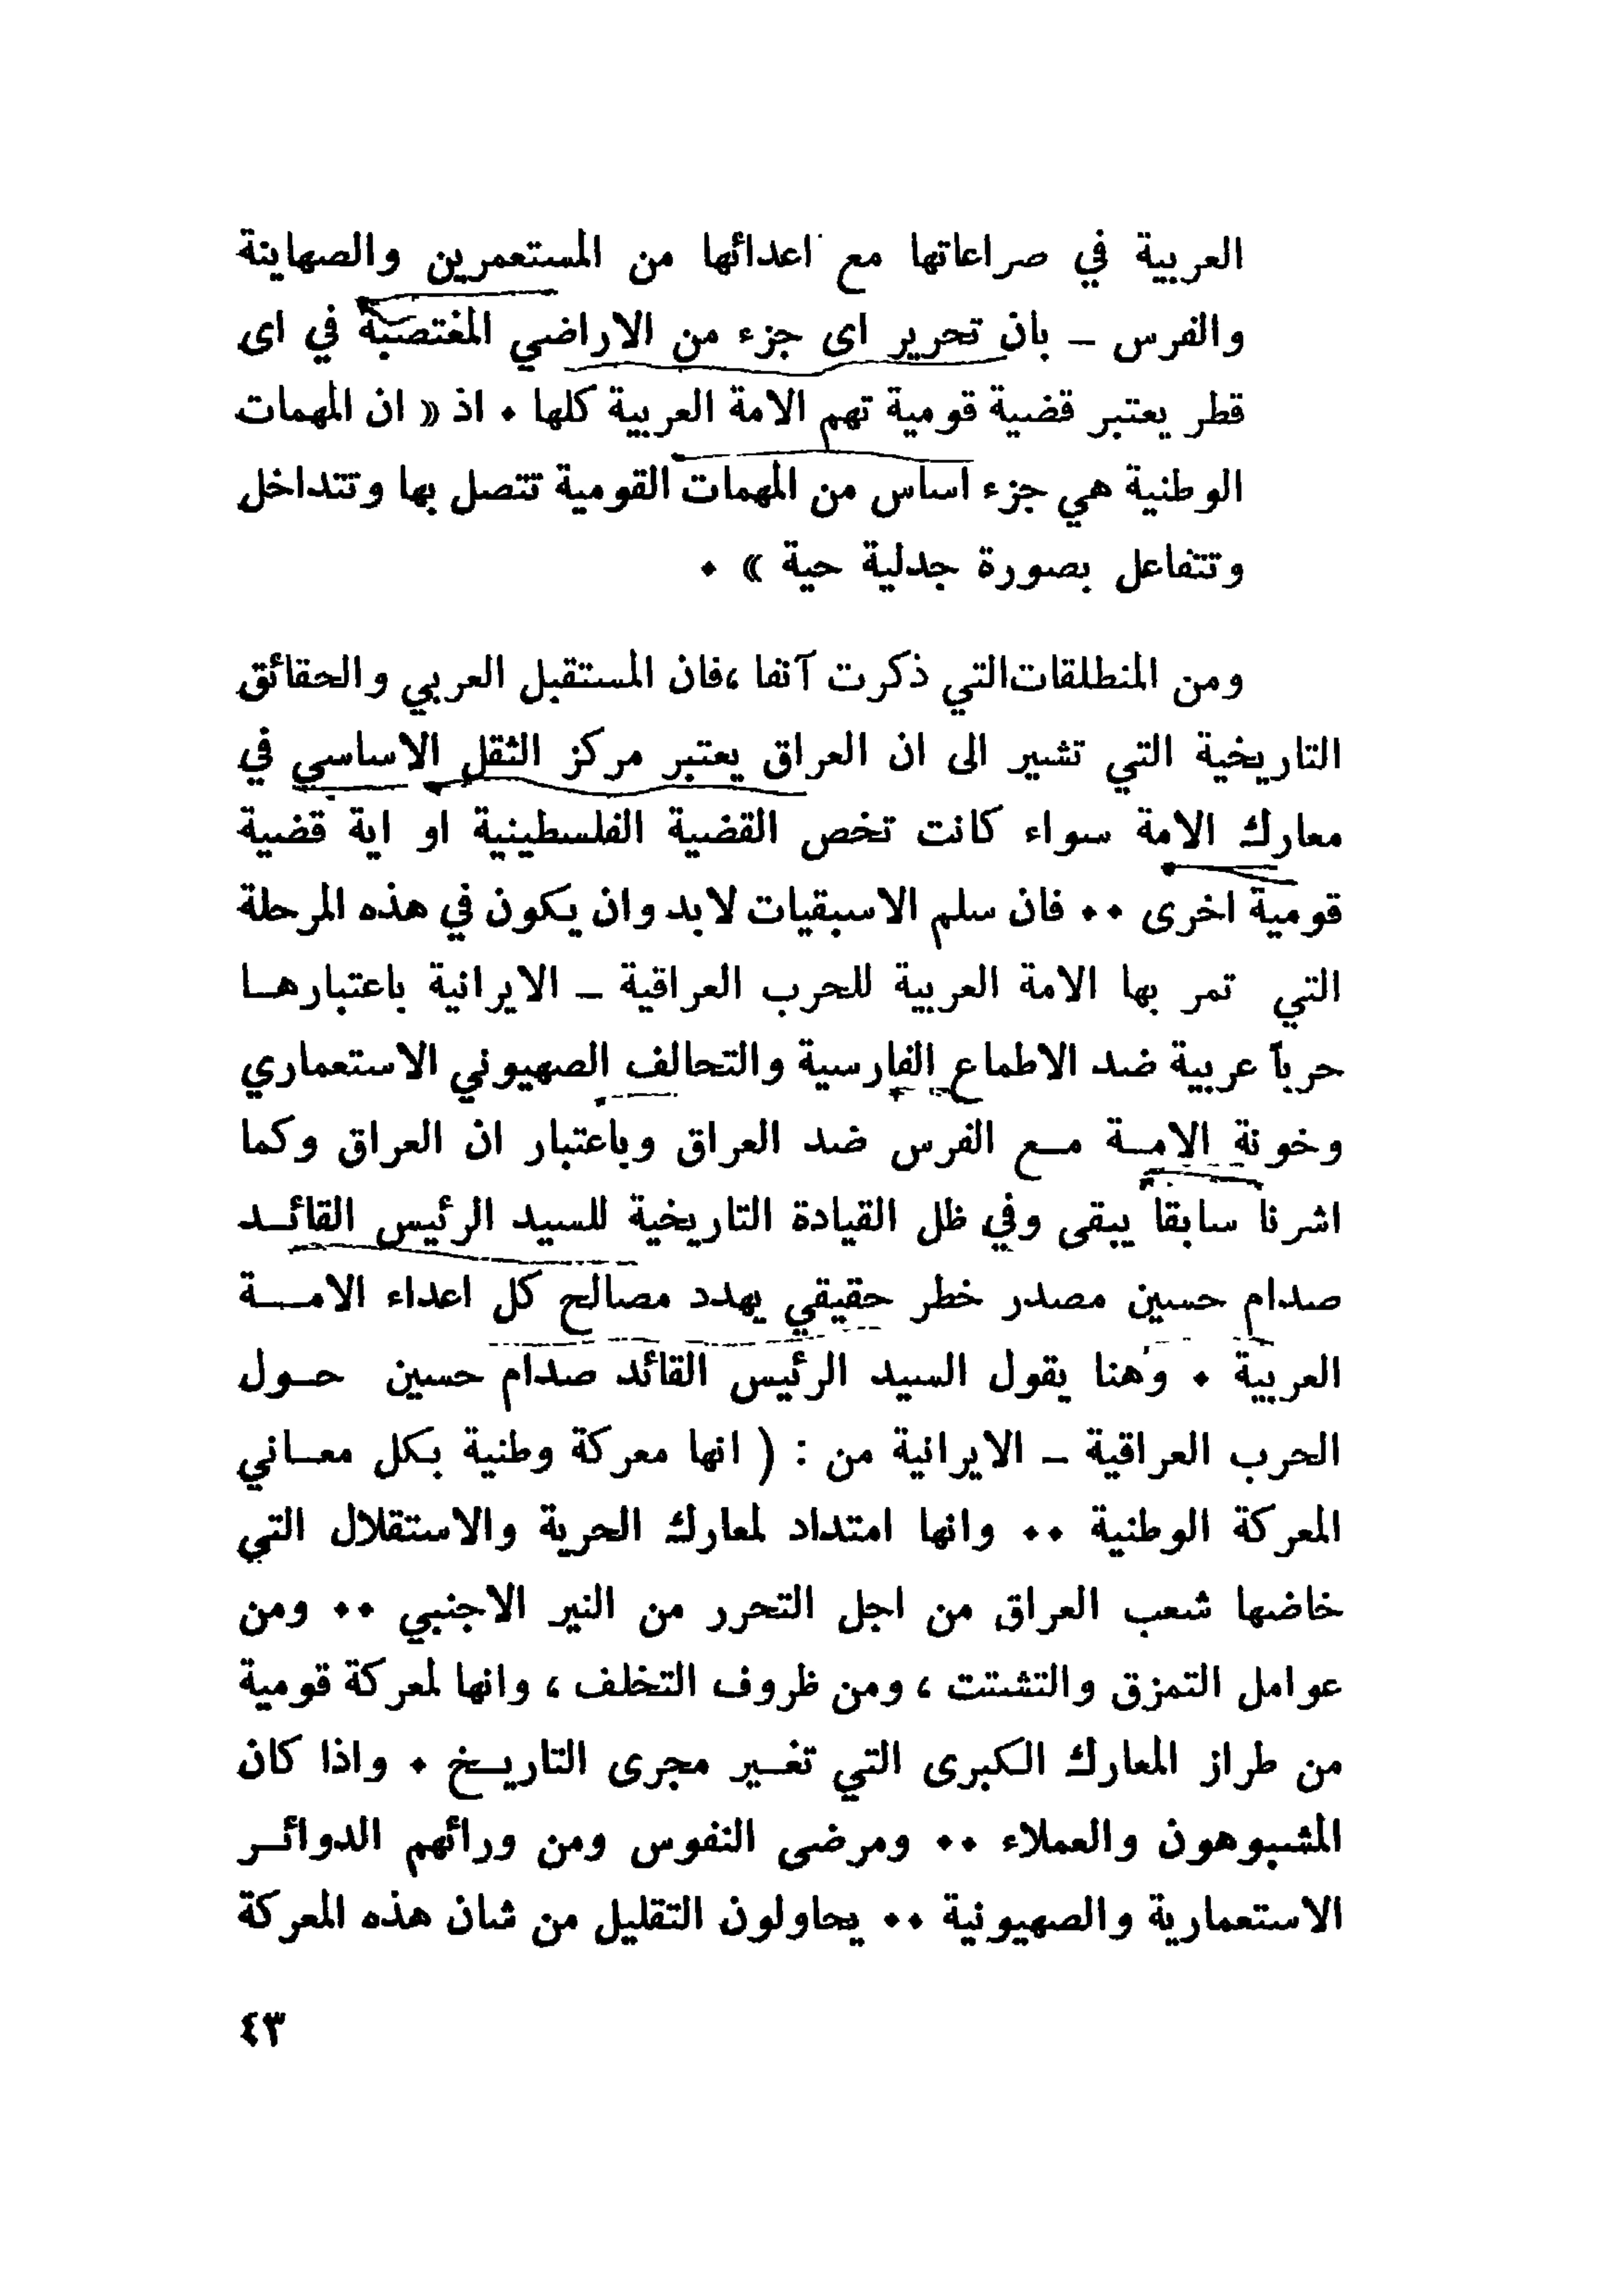 العربية في صراعاتها مع اعدائها من المستعمرين والصهاينة
والفرس – بان تحرير اى جزء من الاراضي المغتصبة في اى
قطر يعتبر قضية قومية تهم الامة العربية كلها . اذ « ان المهمات
الوطنية هي جزء اساس من المهمات القومية تتصل بها وتتداخل
وتتفاعل بصورة جدلية حية » .
ومن المنطلقات التي ذكرت آنفا ،فان المستقبل العربي والحقائق
التاريخية التي تشير الى ان العراق يعتبر مركز الثقل الاساسي في
معارك الامة سواء كانت تخص القضية الفلسطينية او اية قضية
قومية اخرى .. فان سلم الاسبقيات لابد وان يكون في هذه المرحلة
التي تمر بها الامة العربية للحرب العراقية – الايرانية باعتبارهـا
حرباً عربية ضد الاطماع الفارسية والتحالف الصهيوني الاستعماري
وخونة الامـة مـع الفرس ضد العراق وباعتبار ان العراق وكما
اشرنا سابقا يبقى وفي ظل القيادة التاريخية للسيد الرئيس القائـد
صدام حسين مصدر خطر حقيقي يهدد مصالح كل اعداء الامـــة
العربية . وهنا يقول السيد الرئيس القائد صدام حسين حـول
الحرب العراقية – الايرانية من : ( انها معركة وطنية بكل معـاني
المعركة الوطنية .. وانها امتداد لمعارك الحرية والاستقلال التي
خاضها شعب العراق من اجل التحرر من النير الاجنبي .. ومن
عوامل التمزق والتشتت ، ومن ظروف التخلف ، وانها لمعركة قومية
من طراز المعارك الكبرى التي تغـير مجرى التاريـخ . واذا كان
المشبوهون والعملاء .. ومرضى النفوس ومن ورائهم الدوائـر
الاستعمارية والصهيونية .. يحاولون التقليل من شان هذه المعركة
٤٣